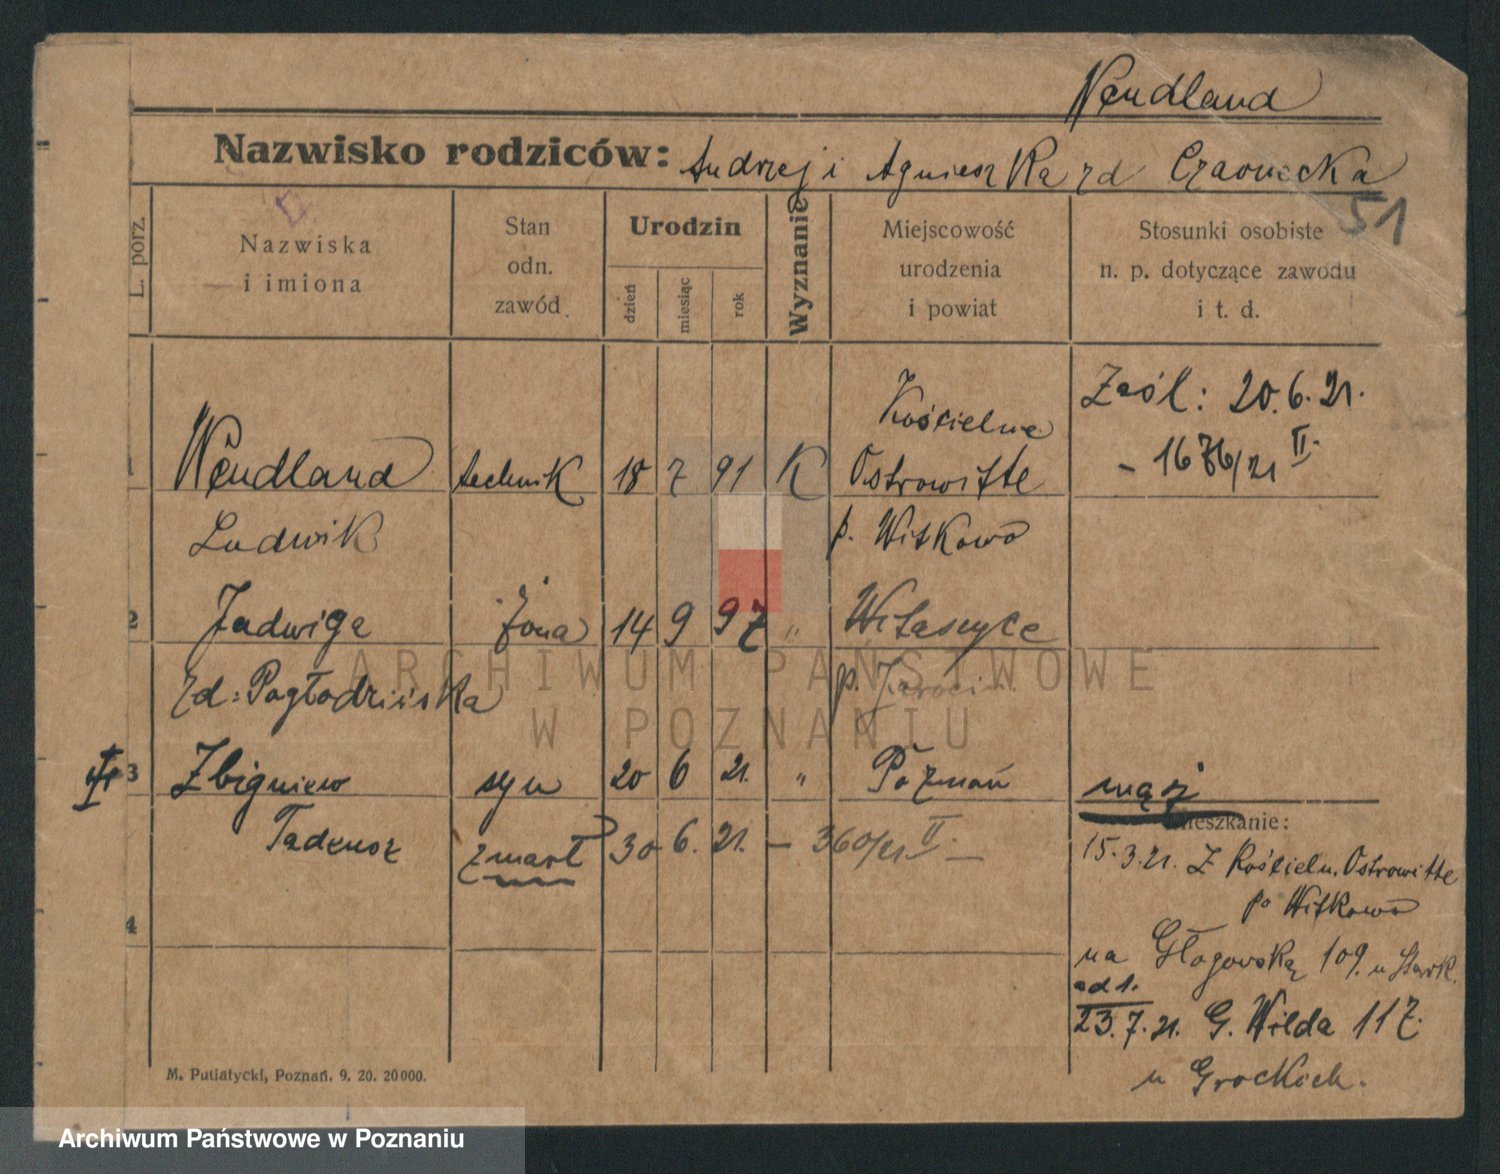 Wendland
Nazwisko rodziców: Andrzej i Agnieszka zd Czarnecka
51
L. porz.
Nazwiska
i imiona
Stan
odn.
zawód
Urodzin
dzień
miesiąc
rok
Wyznanie
Miejscowość
urodzenia
i powiat
Stosunki osobiste
n. p. dotyczące zawodu
i t. d.
Zaśl: 20.6.21.
- 1676/21 II.
1 Wendland technik 18 7 91 K Kościelne
Ostrowitte
Ludwik p. Witkowo
2 Jadwiga żona 14 9 97 " Witaszyce
zd: Pogłodzińska p. Jarocin
3 Zbigniew syn 20 6 21. " Poznań
Tadeusz zmarł 30 6. 21. - 360/21 II. -
4
mąż
Mieszkanie:
15.3.21. z Kościeln. Ostrowitte
po Witkowo
na Głogowską 109. u
ad 1.
23.7.21. G. Wilda 117.
u
M. Putiatycki, Poznań. 9. 20. 20000.
ARCHIWUM PAŃSTWOWE
W POZNANIU
Archiwum Państwowe w Poznaniu